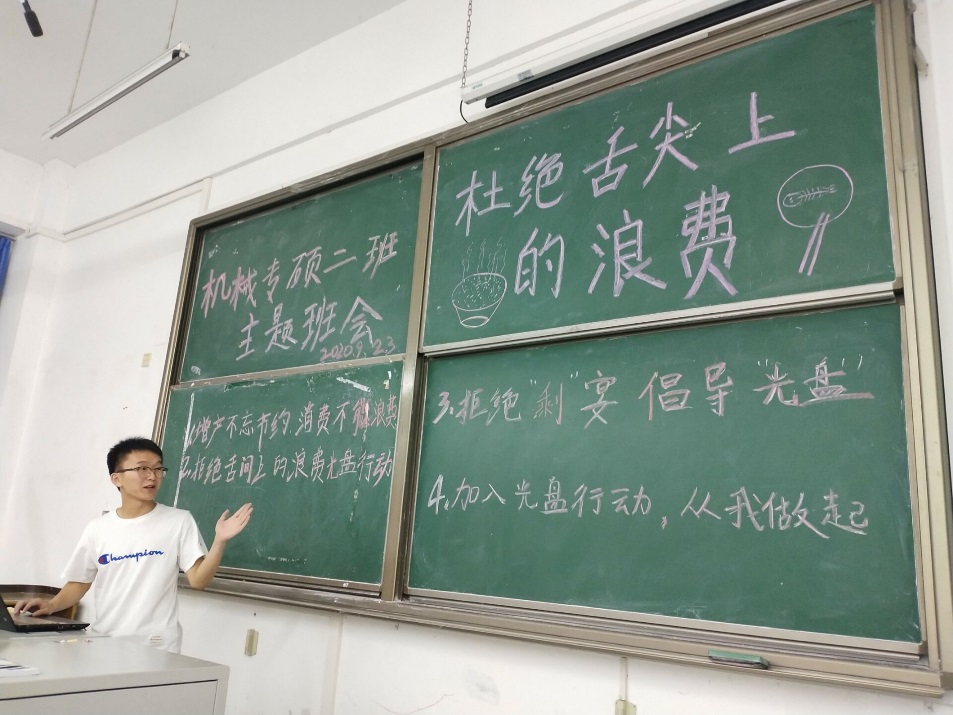 机械专硕二班
主题班会
2020.9.23
杜绝舌尖上
的浪费
1.增产不忘节约,消费不 浪费
2.拒绝舌间上的浪费光盘行动
3.拒绝"剩"宴 倡导"光盘"
4.加入光盘行动,从我做起
Champion